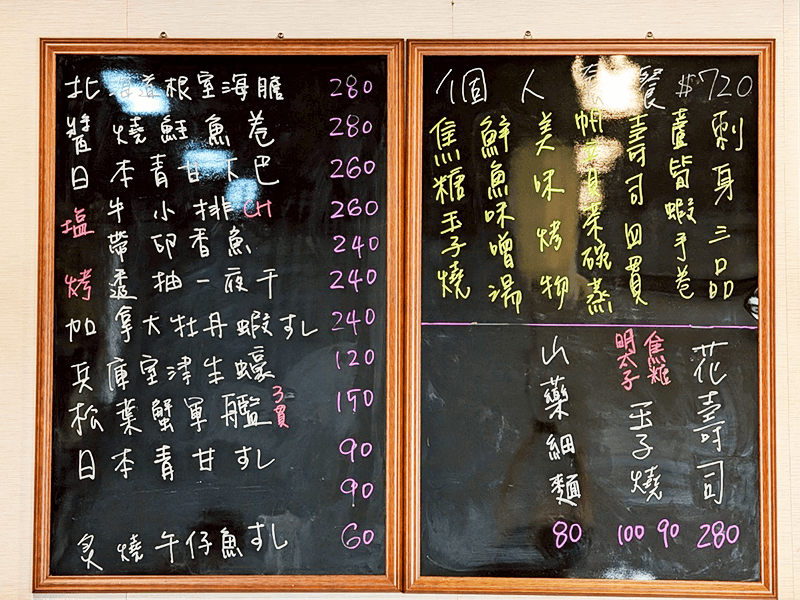 北海道根室海膽 280
醬燒鮭魚卷 280
日本青甘下巴 260
塩 牛小排CH 260
帶卵香魚 240
烤 透抽一夜干 240
加拿大牡丹蝦すし 240
兵庫室津生蠔 120
松葉蟹軍艦 3貫 150
日本青甘すし 90
90
炙燒午仔魚すし 60
個人套餐 $720
刺身三品
蘆筍蝦手卷
壽司四貫
帆立貝茶碗蒸
美味烤物
鮮魚味噌湯
焦糖玉子燒
花壽司 280
焦糖 明太子 玉子燒 90 100
山藥細麵 80